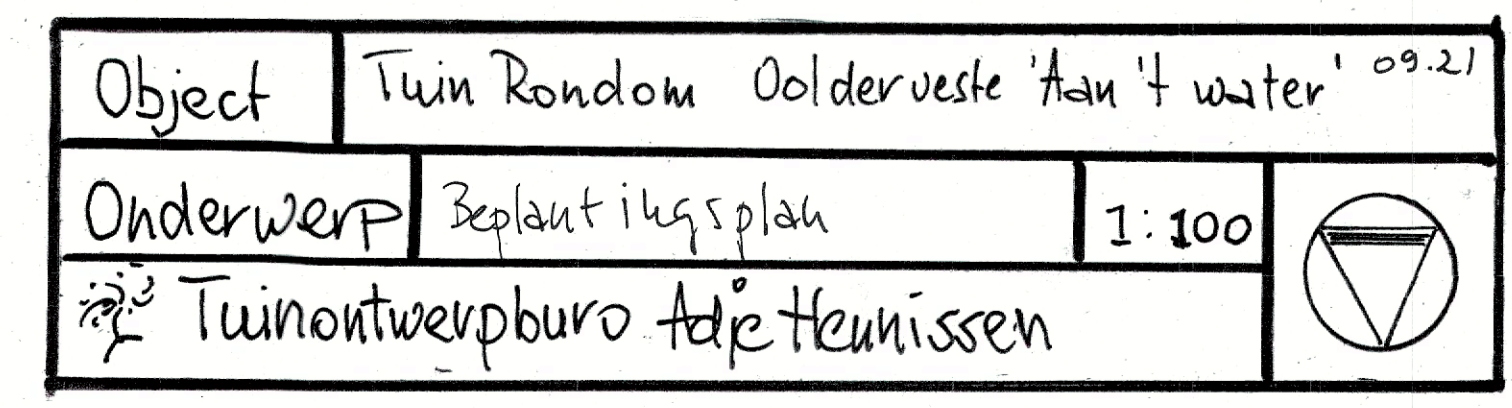 Object Tuin Rondom Oolderveste 'Aan 't water' 09.21
Onderwerp Beplantingsplan 1:100
Tuinontwerpburo Adje Heunissen